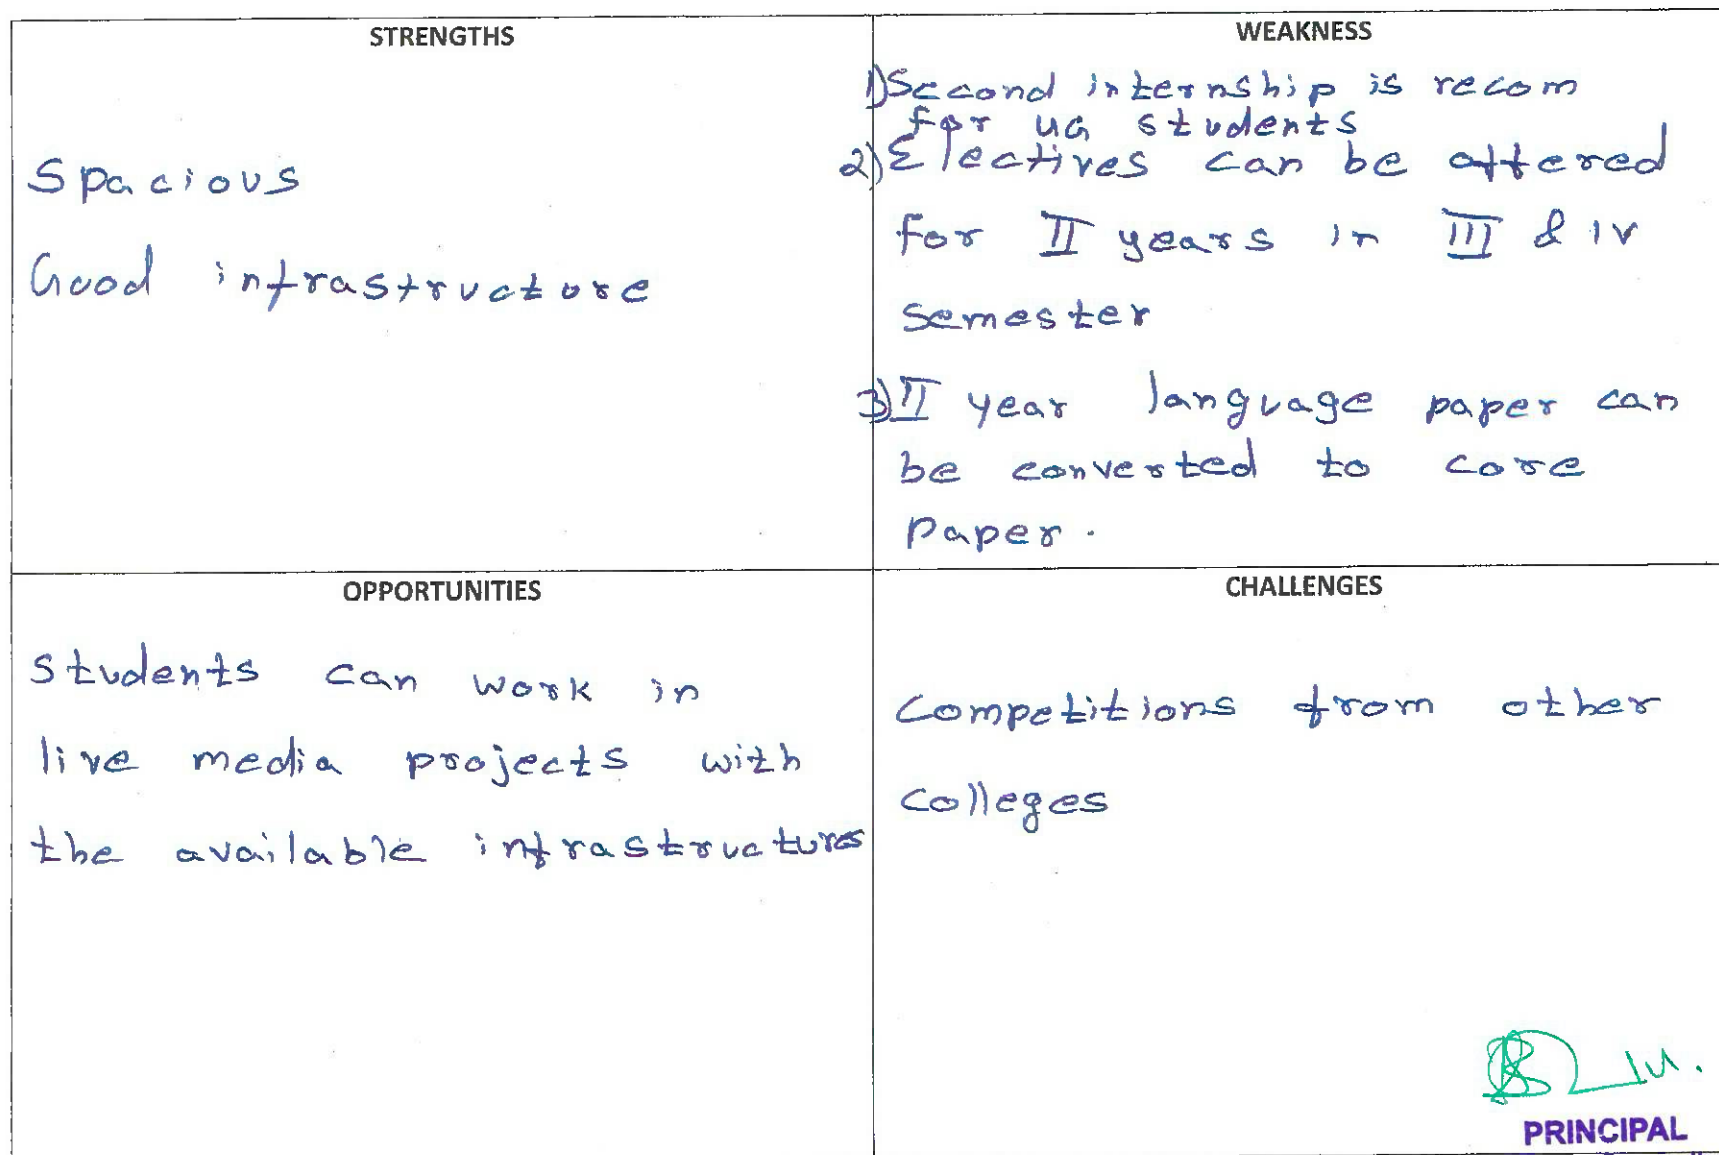 STRENGTHS
Spacious
Good infrastructure
WEAKNESS
1) Second internship is recom
for UG students
2) Electives can be offered
for II years in III & IV
semester
3) II year language paper can
be converted to core
paper.
OPPORTUNITIES
Students can work in
live media projects with
the available infrastructures
CHALLENGES
Competitions from other
colleges
PRINCIPAL